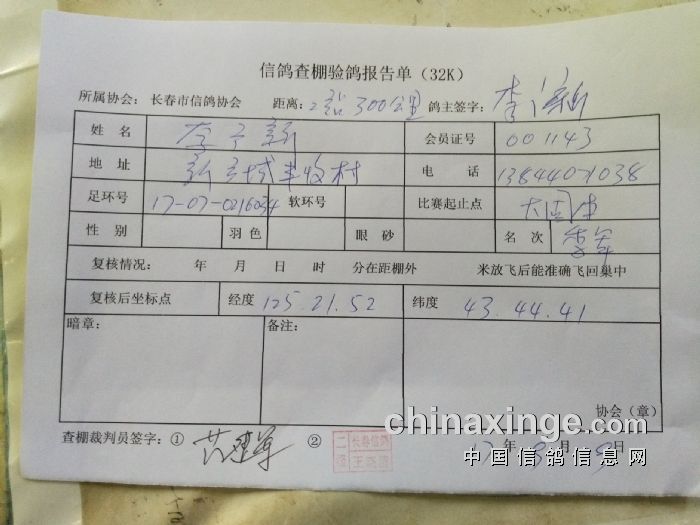 信鸽查棚验鸽报告单（32K）
所属协会：长春市信鸽协会 距离：2站300公里 鸽主签字：李
姓名 李 新 会员证号 001143
地址 新立城丰收村 电话 138440-1038
足环号 17-07-0216034 软环号 比赛起止点
性别 羽色 眼砂 名次 季军
复核情况： 年 月 日 时 分在距棚外 米放飞后能准确飞回巢中
复核后坐标点 经度 125.21.52 纬度 43.44.41
暗章： 备注：
协会（章）
查棚裁判员签字：① ② 二 长春信鸽
17年 月 9日
chinaxinge.com
中国信鸽信息网